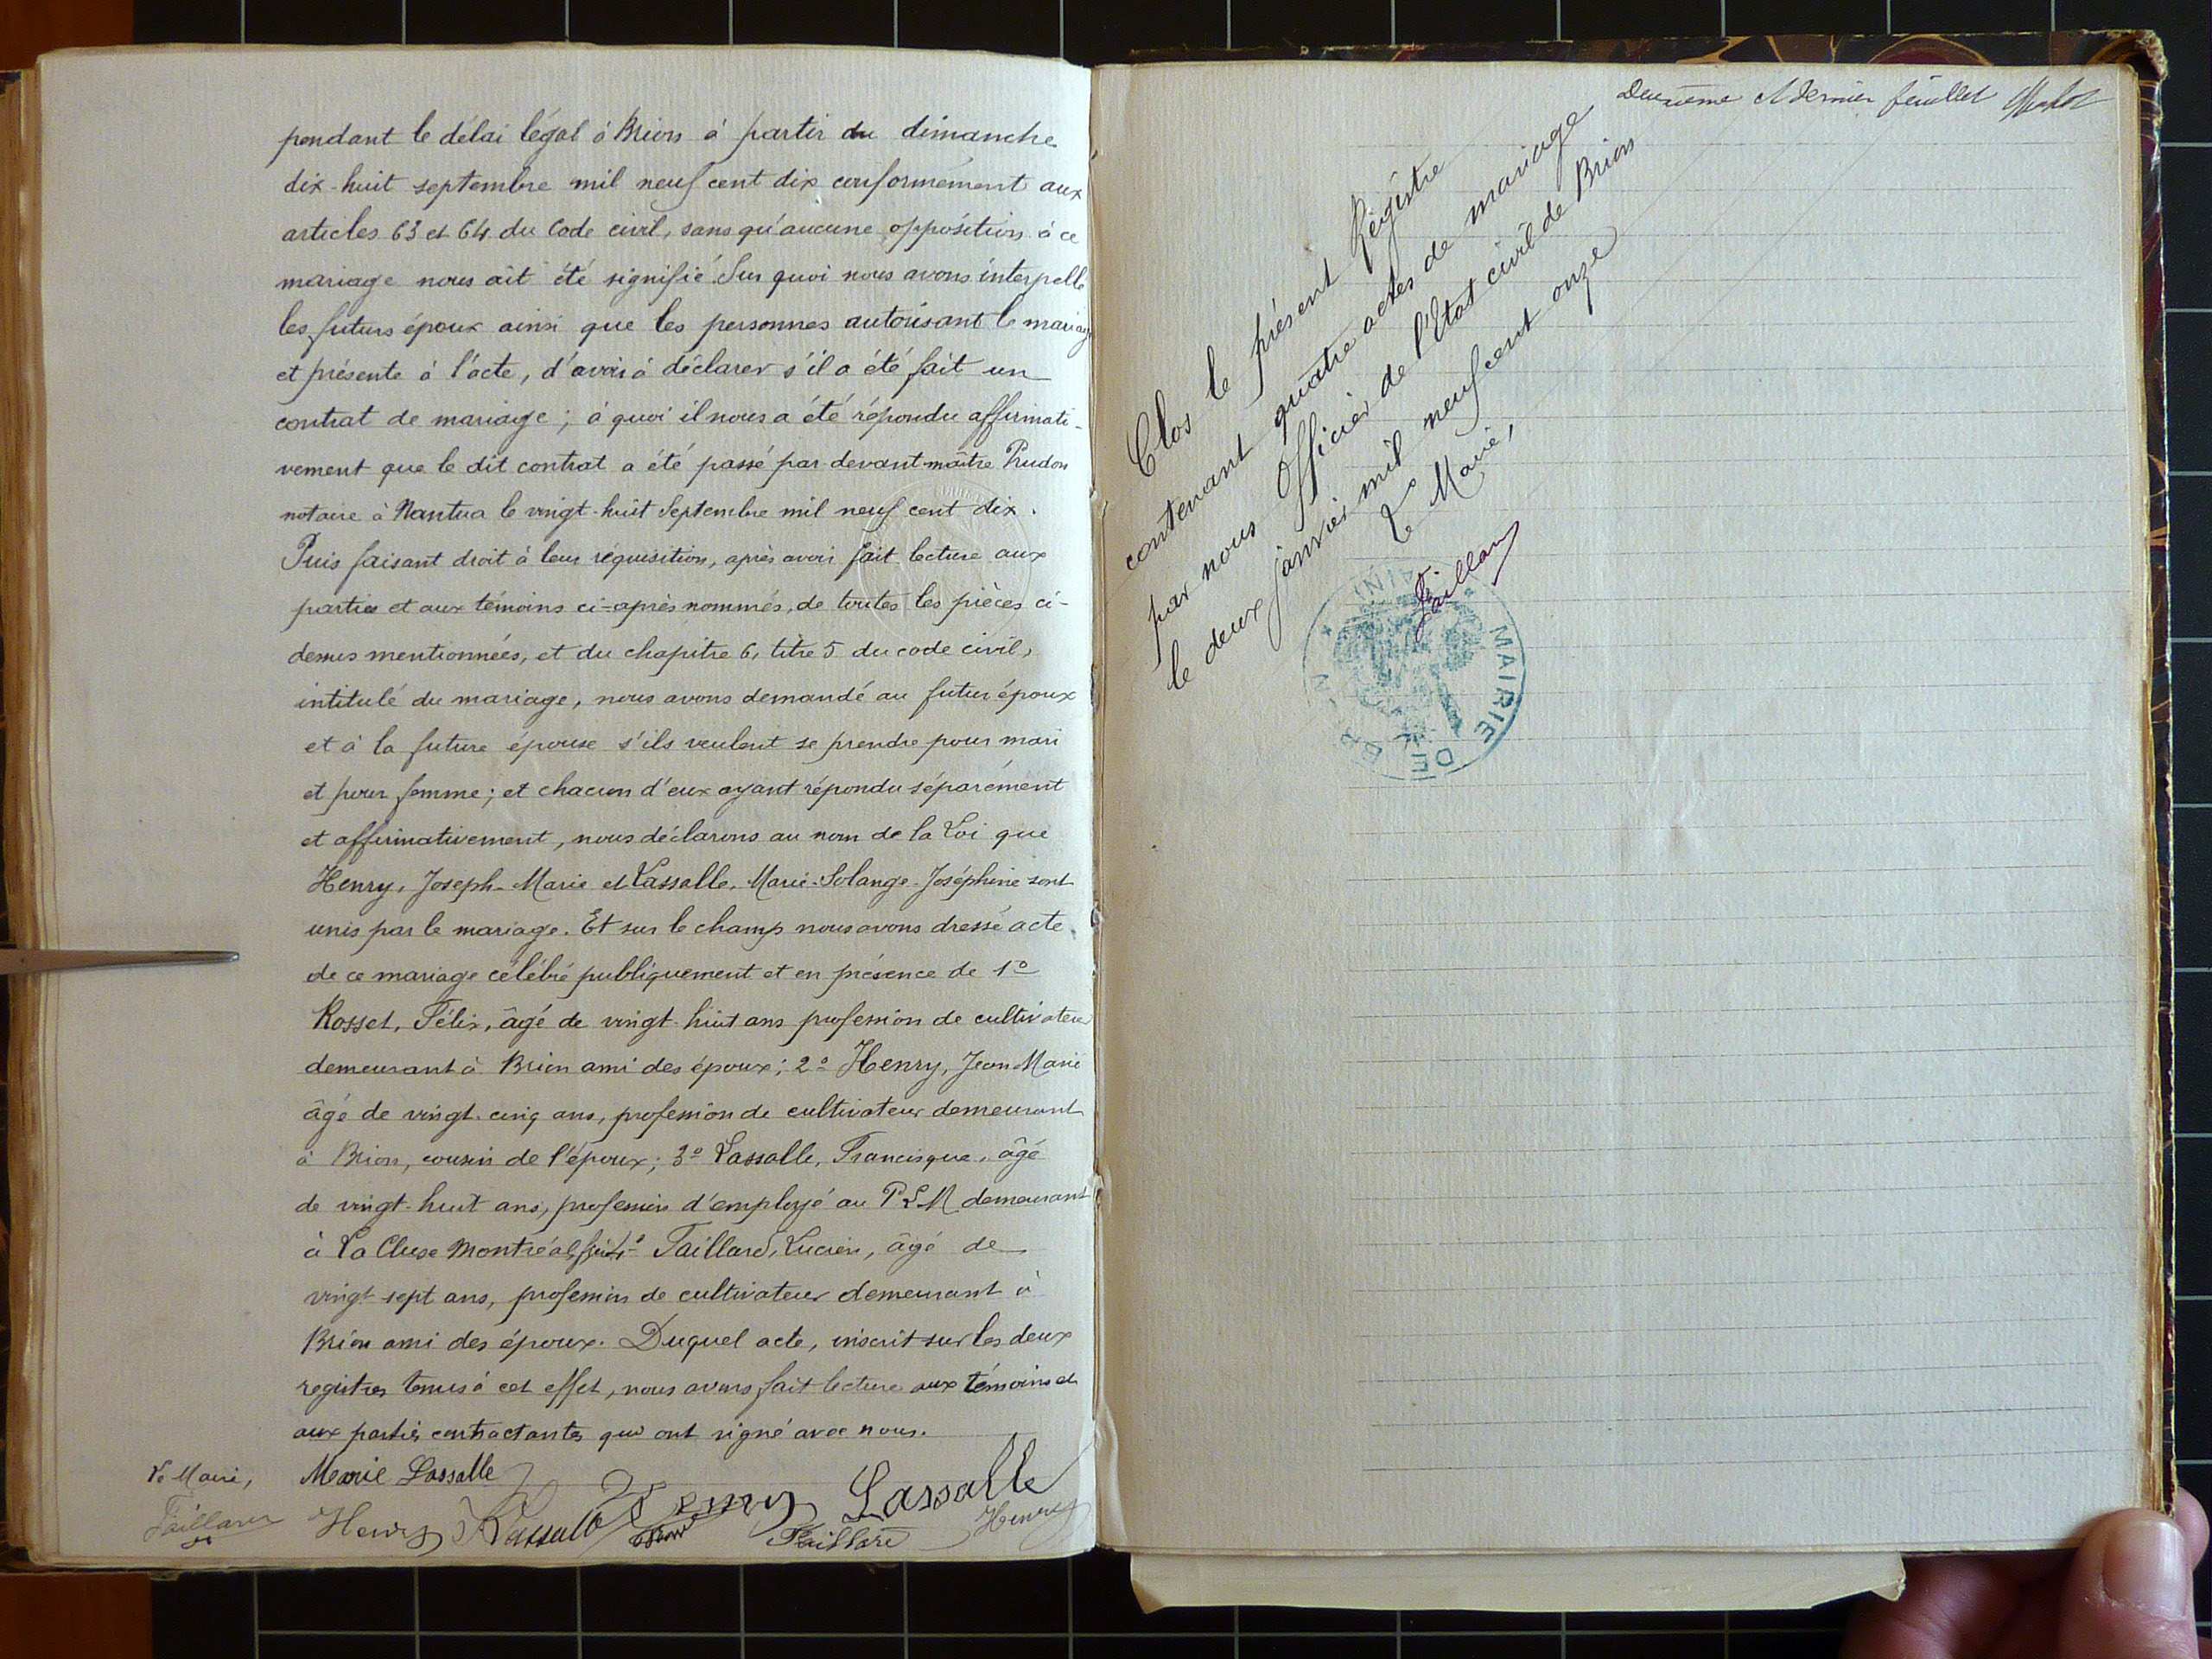 pendant le délai légal à Brion à partir du dimanche
dix-huit septembre mil neuf cent dix conformément aux
articles 63 et 64 du Code civil, sans qu'aucune opposition à ce
mariage nous ait été signifié. Sur quoi nous avons interpellé
les futurs époux ainsi que les personnes autorisant le mariage
et présente à l'acte, d'avoir à déclarer s'il a été fait un
contrat de mariage; à quoi il nous a été répondu affirmati-
vement que le dit contrat a été passé par devant maître Prudon
notaire à Nantua le vingt-huit Septembre mil neuf cent dix.
Puis faisant droit à leur réquisition, après avoir fait lecture aux
parties et aux témoins ci-après nommés, de toutes les pièces ci-
dessus mentionnées, et du chapitre 6, titre 5 du code civil,
intitulé du mariage, nous avons demandé au futur époux
et à la future épouse s'ils veulent se prendre pour mari
et pour femme; et chacun d'eux ayant répondu séparément
et affirmativement, nous déclarons au nom de la Loi que
Henry, Joseph-Marie et Lassalle, Marie-Solange-Joséphine sont
unis par le mariage. Et sur le champ nous avons dressé acte
de ce mariage célébré publiquement et en présence de 1º
Rosset, Félix, âgé de vingt-huit ans profession de cultivateur
demeurant à Brion ami des époux; 2º Henry, Jean Marie
âgé de vingt-cinq ans, profession de cultivateur demeurant
à Brion, cousin de l'époux; 3º Lassalle, Francisque, âgé
de vingt-huit ans, profession d'employé au PLM demeurant
à La Cluse Montréal, 4º Taillard, Lucien, âgé de
vingt-sept ans, profession de cultivateur demeurant à
Brion ami des époux. Duquel acte, inscrit sur les deux
registres tenus à cet effet, nous avons fait lecture aux témoins et
aux parties contractantes qui ont signé avec nous.
Le Maire, Marie Lassalle
Henry Lassalle
Taillard Henry Lassalle Taillard Henry
Deuxième et dernier feuillet
Clos le présent Régistre
contenant quatre actes de mariage
par nous Officier de l'Etat civil de Brion
le deux janvier mil neuf cent onze
Le Maire,
Taillard
MAIRIE DE BRION (AIN)